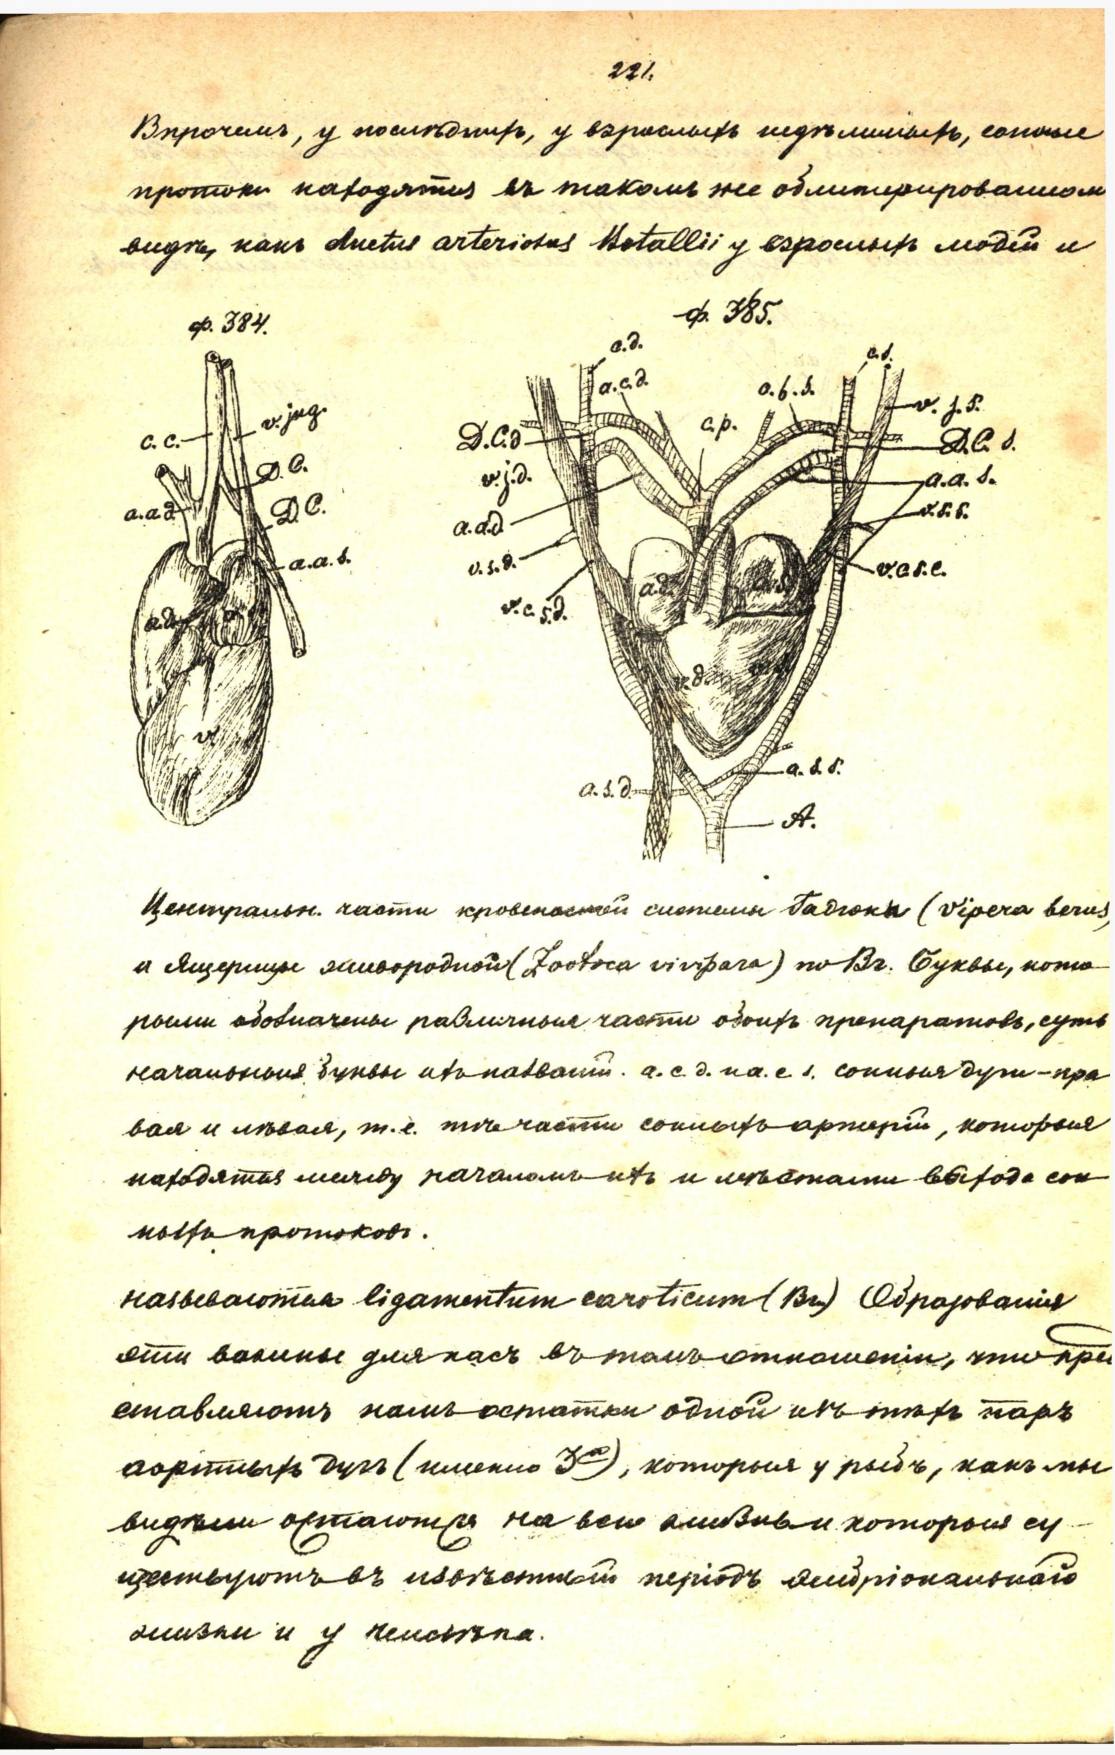 221.
Впрочемъ, у послѣднихъ, у взрослыхъ недѣлимыхъ, сонные
протоки находятся въ такомъ же облитерированном
видѣ, какъ ductus arteriosus Botallii у взрослыхъ людей и
ф. 384.
ф. 385.
c.d.
c.s.
a.c.d.
a.f.s.
v. j. s.
c.p.
c.c.
v. jug.
D.C.d
D.C. s.
D.C.
v.j.d.
a.a. s.
a.a.d
D.C.
a.a.d
v.s.s.
a.a.s.
v.s.d.
v.c.s.c.
v.c.s.d.
a.d.
a.d.
v.d.
v.
a.s.s.
a.s.d.
A.
Центральн. части кровеносной системы Гадюки (Vipera berus)
и Ящерицы живородной (Zootoca vivipara) по Br. Буквы, кото-
рыми обозначены различныя части обоихъ препаратовъ, суть
начальныя буквы ихъ названій. a.c.d. и a.c s. сонныя дуги – пра
вая и лѣвая, т.е. тѣ части сонныхъ артерій, которыя
находятся между началомъ ихъ и мѣстами выхода сон
ныхъ протоковъ.
называются ligamentum caroticum (Br.) Образованія
эти важны для насъ въ томъ отношеніи, что пред
ставляютъ намъ остатки одной изъ тѣхъ паръ
аортныхъ дугъ (именно 3я), которыя у рыбъ, какъ мы
видѣли остаются на всю жизнь и которыя су-
ществуютъ въ извѣстный періодъ эмбріональнаго
жизни и у человѣка.